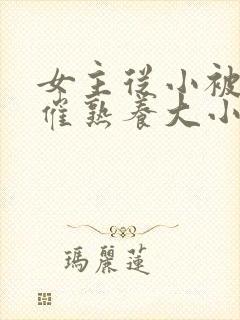 女主從小被
催熟養大小
瑪麗蓮